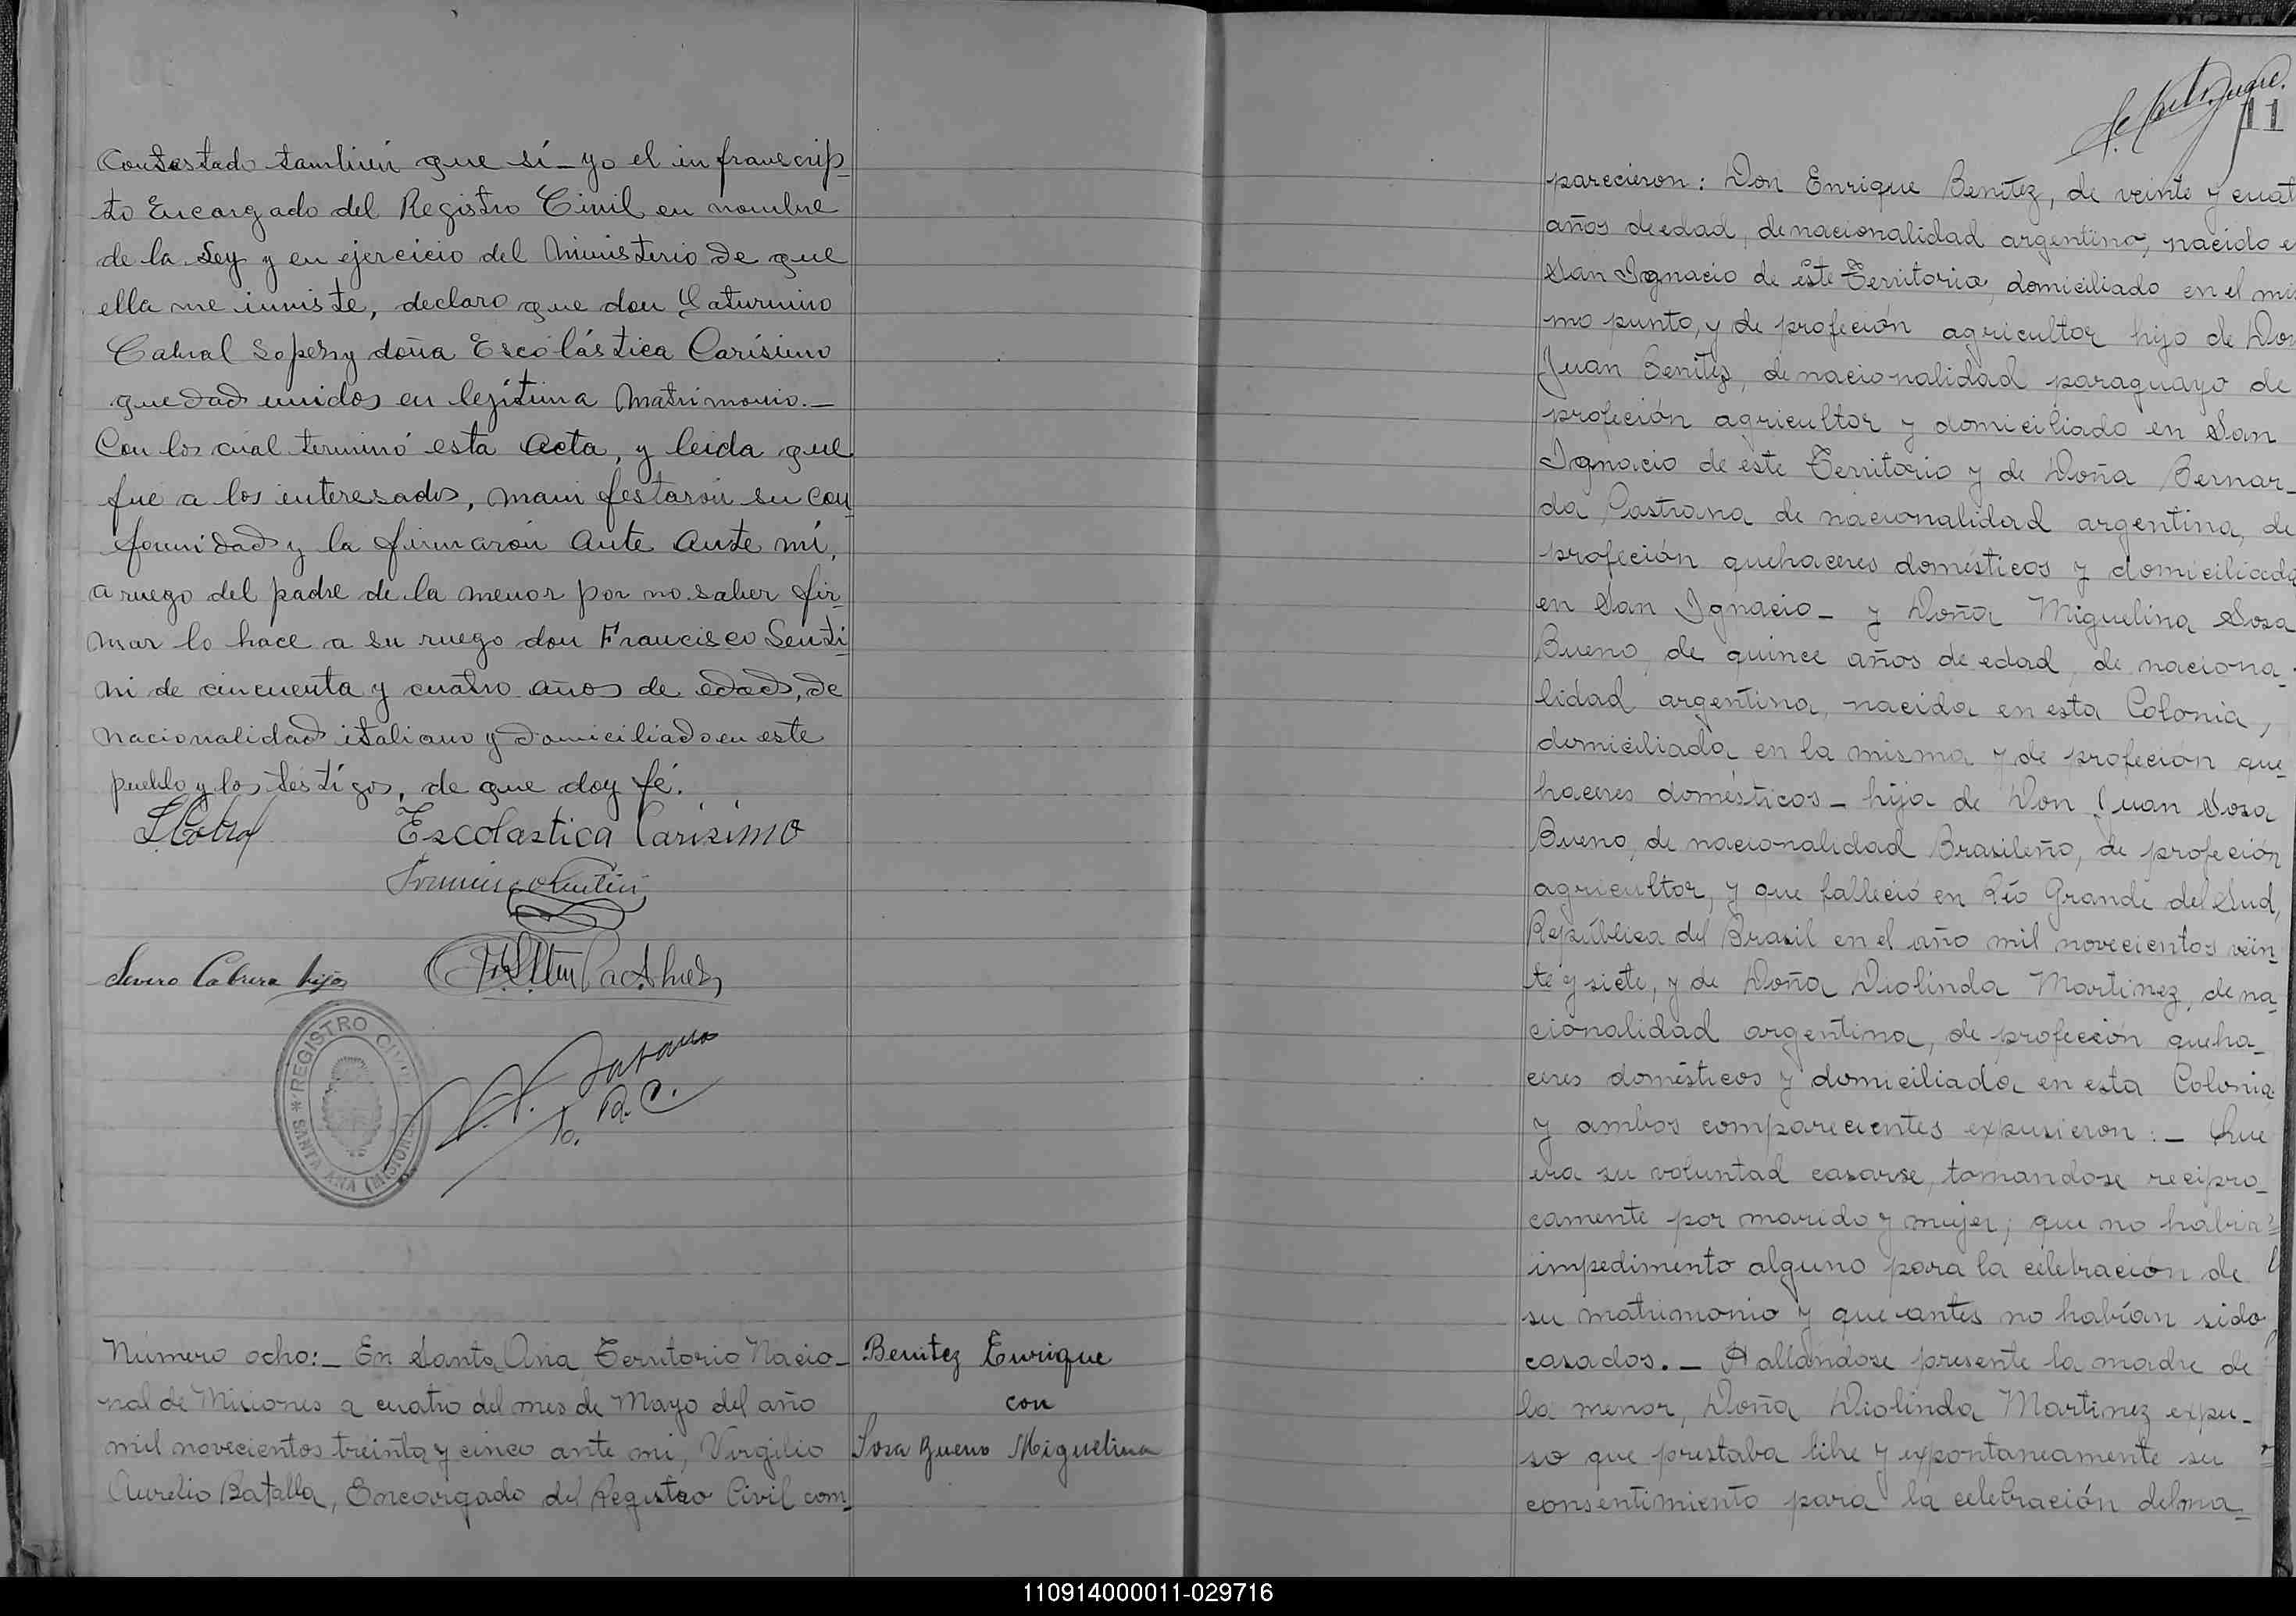 contestado también que sí - yo el infraescrip-
to Encargado del Registro Civil en nombre
de la Ley y en ejercicio del Ministerio de que
ella me inviste, declaro que don Saturnino
Cabral Lopez y doña Escolástica Carísimo
quedad unidos en legítima matrimonio.-
Con los cual terminó esta acta, y leida que
fué a los interesados, manifestaron su con-
formidad y la firmaron ante ante mí,
a ruego del padre de la menor por no saber fir-
mar lo hace a su ruego don Francisco Senti-
ni de cincuenta y cuatro años de edad, de
nacionalidad italiano y domiciliado en este
pueblo y los téstigos, de que doy fé.
S Cabral Escolastica Carisimo
Severo Cabrera hijo
REGISTRO CIVIL
SANTA ANA (MISIONES)
R. C.
Número ocho:- En Santa Ana Territorio Nacio-
nal de Misiones a cuatro del mes de Mayo del año
mil novecientos treinta y cinco ante mi, Virgilio
Aurelio Batalla, Encargado del Registro Civil com-
Benitez Enrique
con
Sosa Bueno Miguelina
11
parecieron: Don Enrique Benítez, de veinte y cuat
años de edad, de nacionalidad argentino, nacido e
San Ignacio de éste Territorio, domiciliado en el mis
mo punto, y de profeción agricultor hijo de Don
Juan Benítez, de nacionalidad paraguayo de
profeción agricultor y domiciliado en San
Ignacio de éste Territorio y de Doña Bernar-
da Castrana de nacionalidad argentina, de
profeción quehaceres domésticos y domiciliada
en San Ignacio - y Doña Miguelina Sosa
Bueno, de quince años de edad, de naciona-
lidad argentina, nacida en esta Colonia,
domiciliada en la misma y de profeción que-
haceres domésticos - hija de Don Juan Sosa
Bueno, de nacionalidad Brasileño, de profeción
agricultor, y que falleció en Río Grande del Sud,
República del Brasil en el año mil novecientos vein-
te y siete, y de Doña Diolinda Martinez, de na-
cionalidad argentina, de profección queha-
ceres domésticos y domiciliada en esta Colonia
y ambos comparecientes expusieron:- Que
era su voluntad casarse, tomandose recipro-
camente por marido y mujer; que no habia
impedimento alguno para la celebración de
su matrimonio y que antes no habían sido
casados.- Hallándose presente la madre de
la menor, Doña Diolinda Martinez expu-
so que prestaba libre y expontaneamente su
consentimiento para la celebración del ma-
110914000011-029716